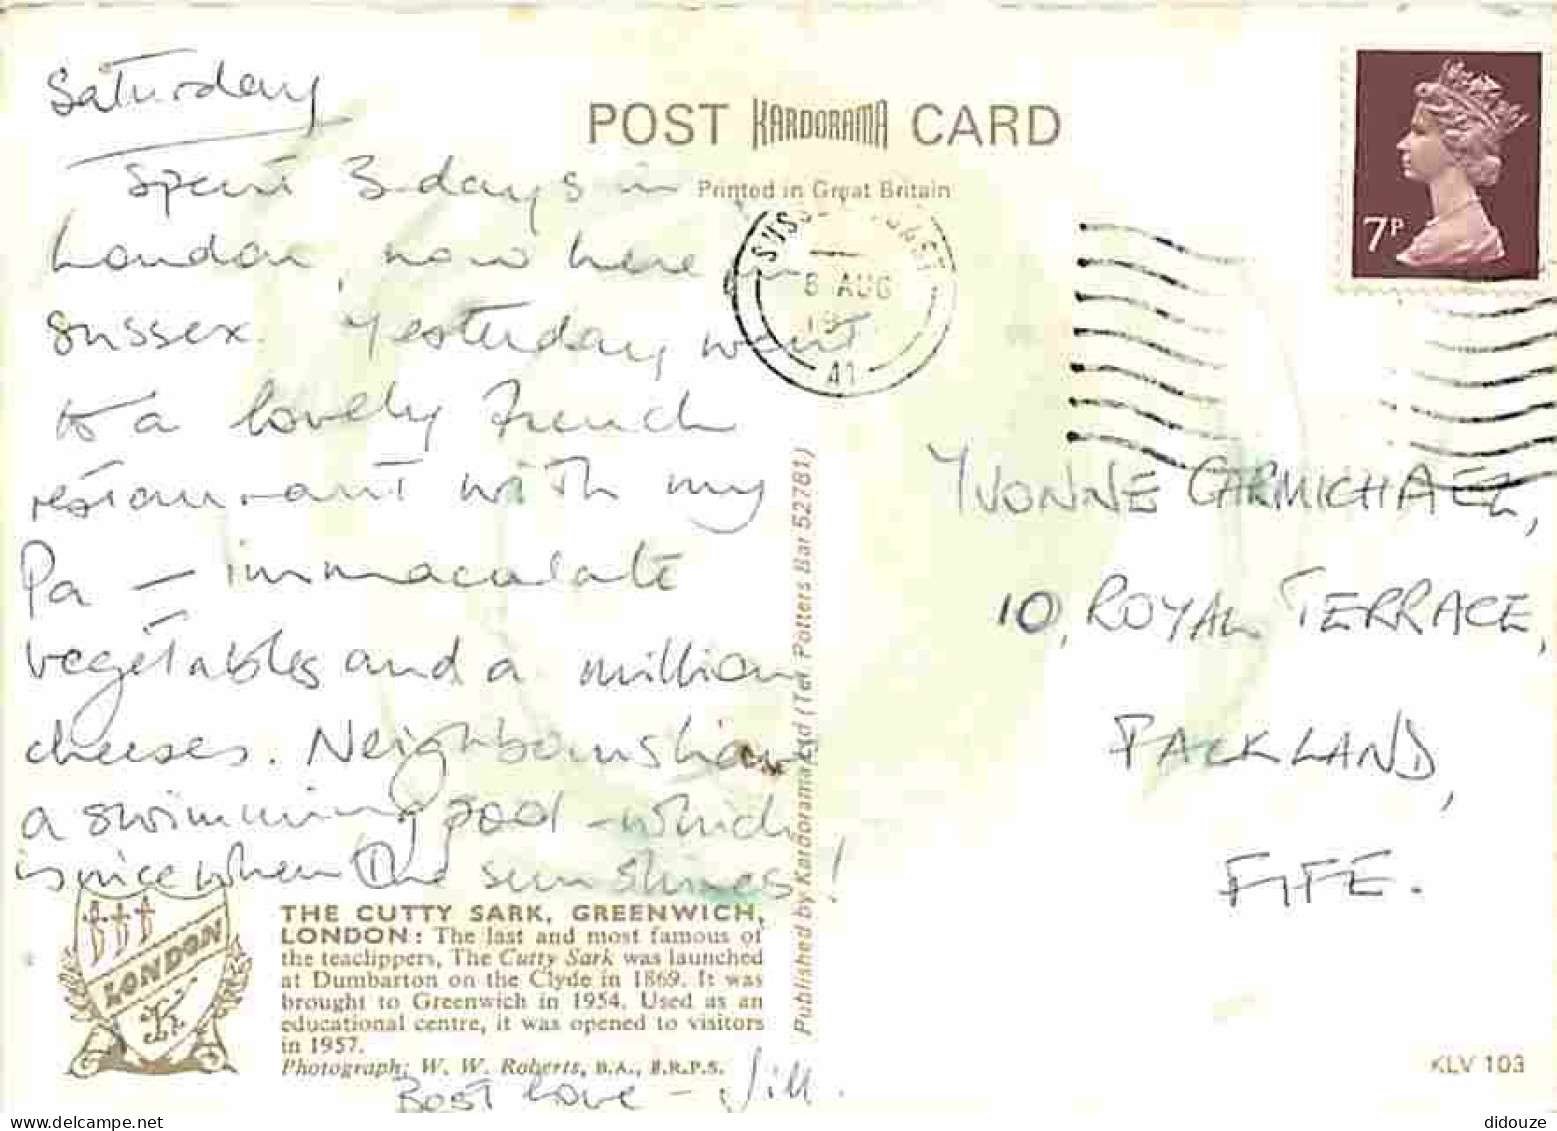 Saturday
Spent 3 days in
London, now here in
Sussex. Yesterday went
to a lovely French
restaurant with my
Pa — immaculate
vegetables and a million
cheeses. Neighbours have
a swimming pool - which
is nice when the sun shines!
Best love - Jill.
POST KARDORAMA CARD
Printed in Great Britain
8 AUG
41
7P
YVONNE CARMICHAEL,
10, ROYAL TERRACE,
FALKLAND,
FIFE.
Published by Kardorama Ltd (Tel. Potters Bar 52781)
LONDON
K
THE CUTTY SARK, GREENWICH,
LONDON: The last and most famous of
the teaclippers, The Cutty Sark was launched
at Dumbarton on the Clyde in 1869. It was
brought to Greenwich in 1954. Used as an
educational centre, it was opened to visitors
in 1957.
Photograph: W. W. Roberts, B.A., F.R.P.S.
KLV 103
didouze